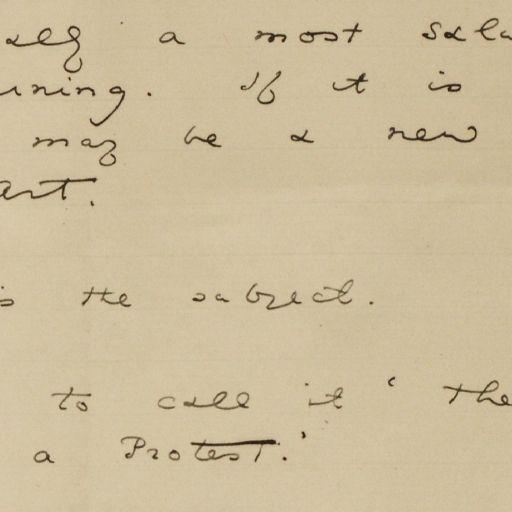 a most salu
ning. If it is
may be a new
art.
is the subject.
to call it ' the
a Protest.'